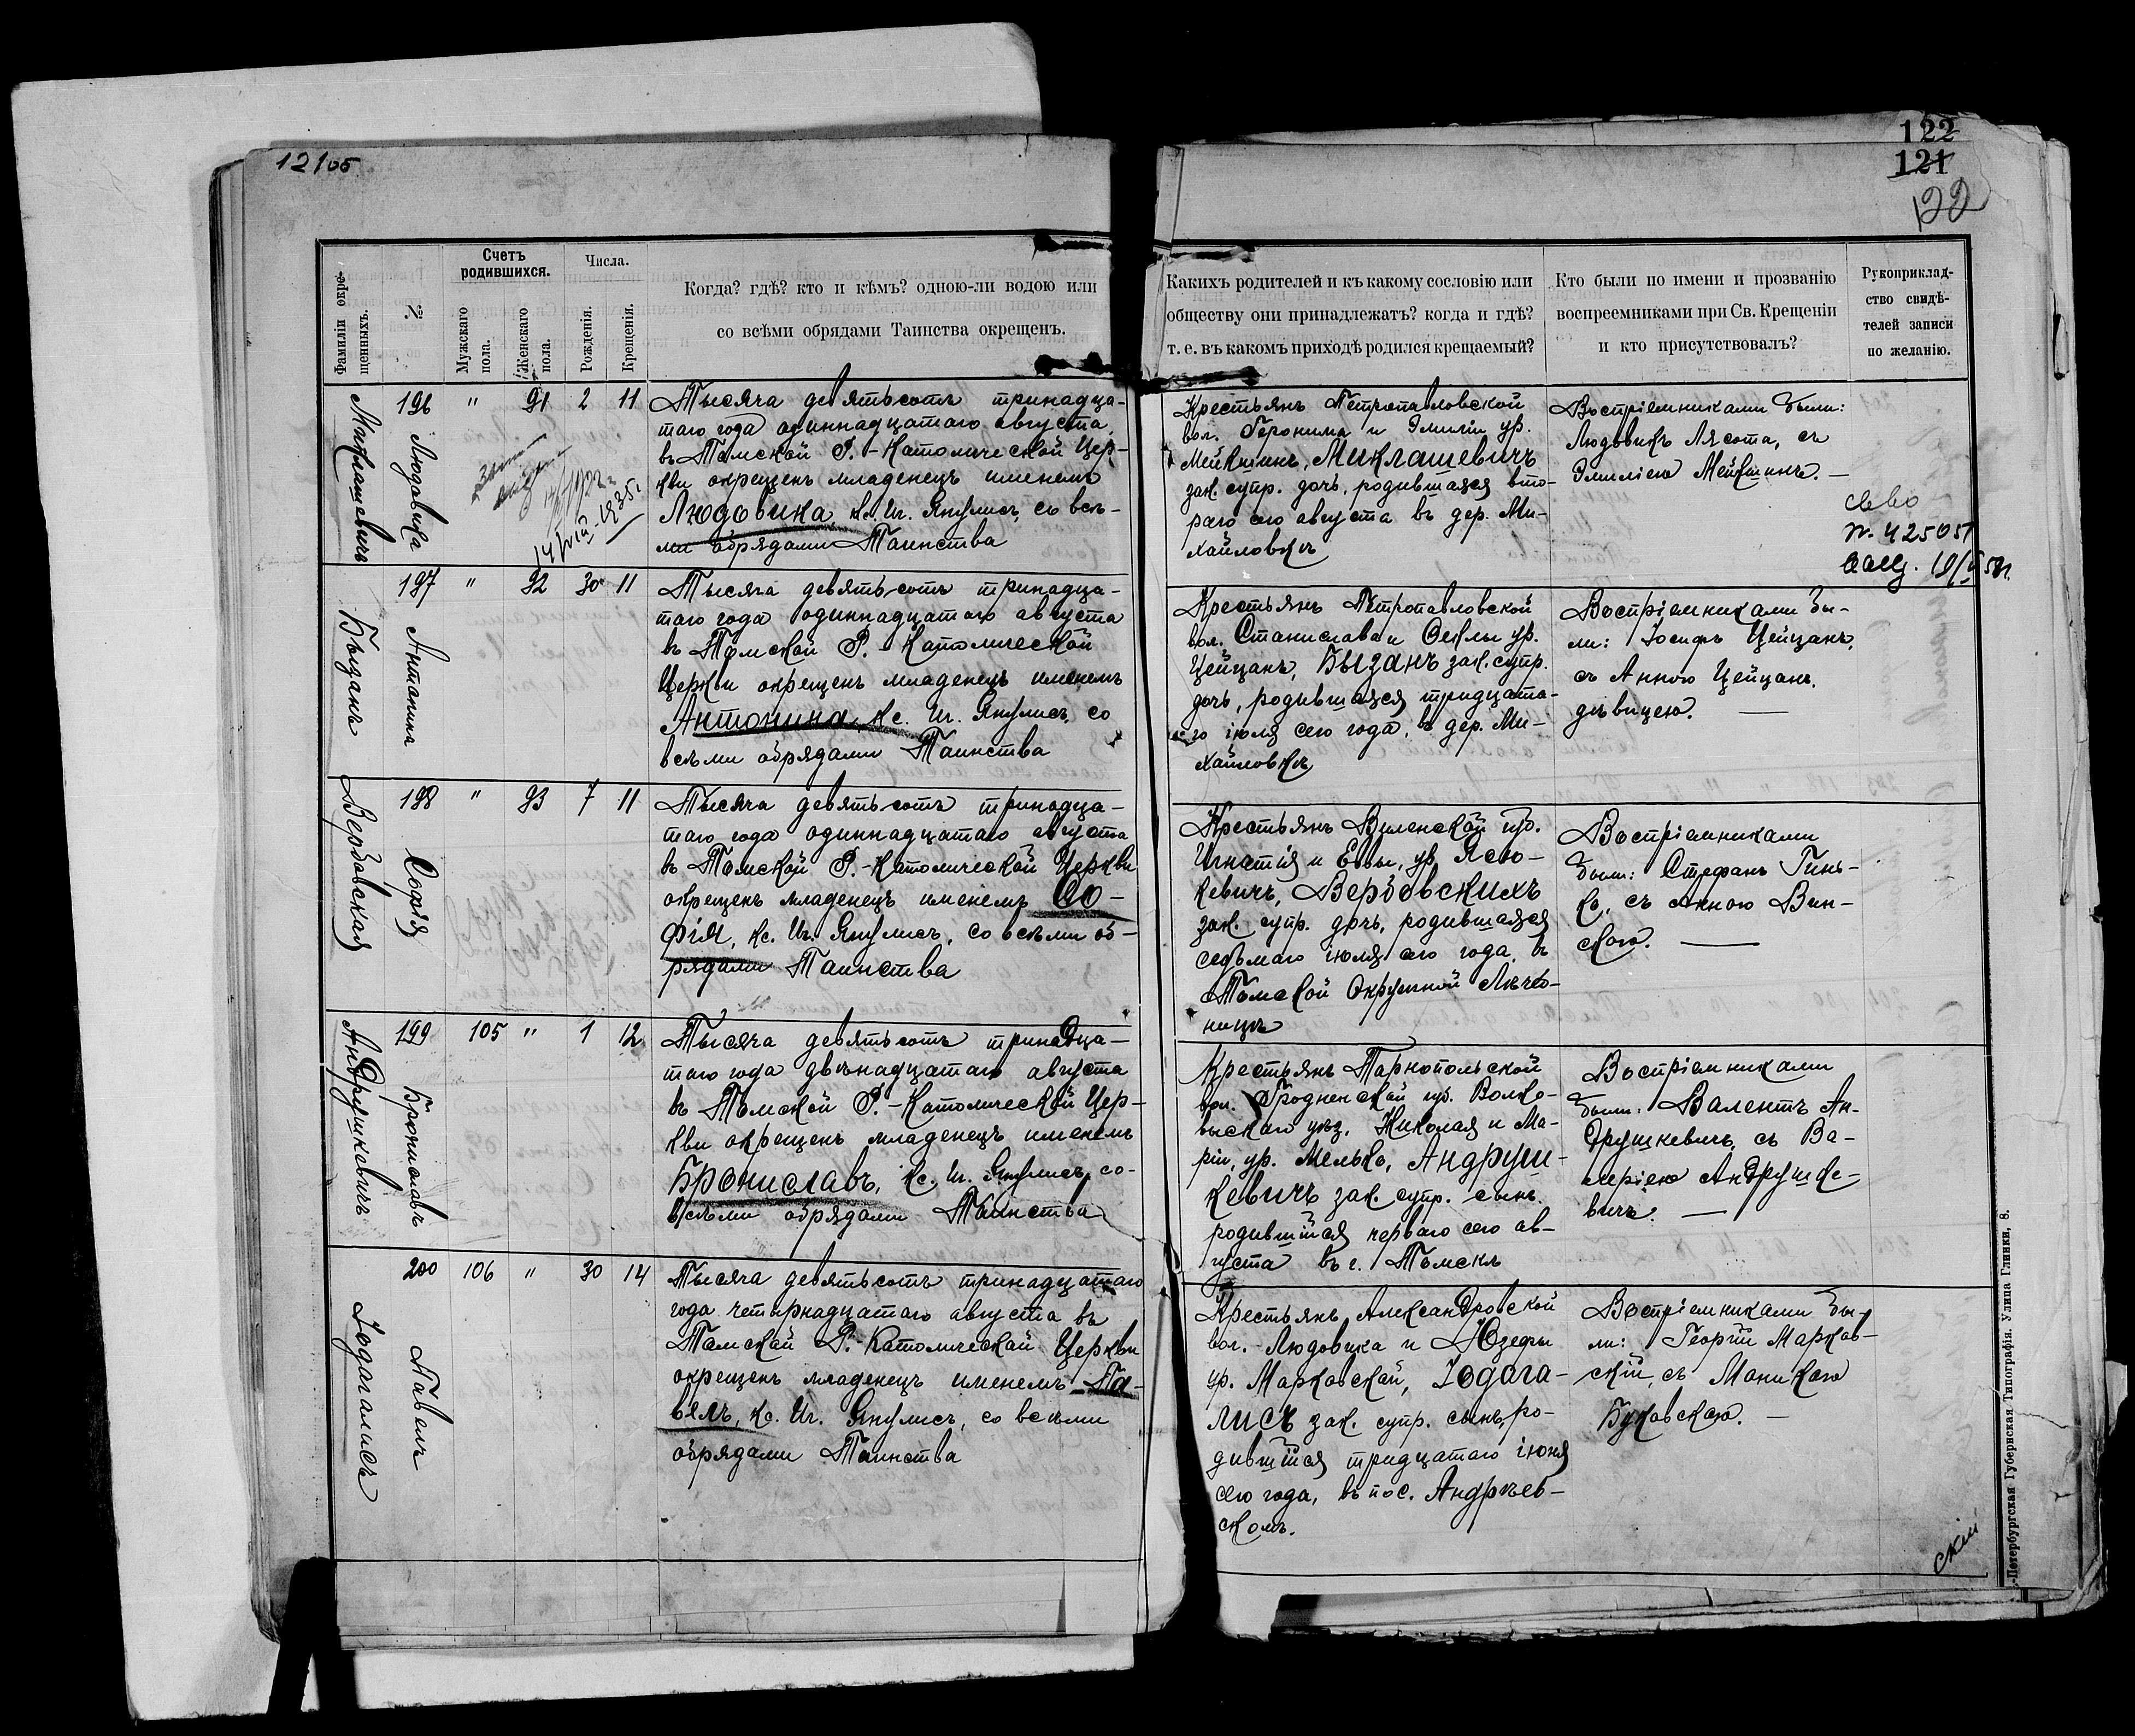 12105
122
121
122
Фамиліи окре-
щенныхъ.
№
Счетъ
родившихся.
Мужскаго
пола.
Женскаго
пола.
Числа.
Рожденія.
Крещенія.
Когда? гдѣ? кто и кѣмъ? одною-ли водою или
со всѣми обрядами Таинства окрещенъ.
Какихъ родителей и къ какому сословію или
обществу они принадлежатъ? когда и гдѣ?
т. е. въ какомъ приходѣ родился крещаемый?
Кто были по имени и прозванію
воспреемниками при Св. Крещеніи
и кто присутствовалъ?
Рукоприклад-
ство свидѣ-
телей записи
по желанію.
Миклашевичъ
196
Людовика
" 91 2 11
14/VIII-1935г.
Тысяча девятьсотъ тринадца-
таго года одиннадцатаго августа
въ Томской Р.-Католической Цер-
кви окрещенъ младенецъ именемъ
Людовика, кс. Иг. Янулисъ, со всѣ-
ми обрядами Таинства
Крестьянъ Петропавловской
вол. Геронима и Эмиліи ур.
Мейкшинъ, Миклашевичъ
зак. супр. дочь, родившаяся вто-
раго сего августа въ дер. Ми-
хайловкѣ
Воспріемниками были:
Людовикъ Лясота, съ
Эмиліею Мейкшинъ. —
св-во
№ 425051
Бызанъ
197
Антонина
" 92 30 11
Тысяча девятьсотъ тринадца-
таго года одиннадцатаго августа
въ Томской Р.-Католической
Церкви окрещенъ младенецъ именемъ
Антонина, кс. Иг. Янулисъ, со
всѣми обрядами Таинства
Крестьянъ Петропавловской
вол. Станислава и Феклы ур.
Цейцанъ, Бызанъ зак. супр.
дочь, родившаяся тридцата-
го іюля сего года, въ дер. Ми-
хайловкѣ
Воспріемниками бы-
ли: Іосифъ Цейцанъ,
съ Анною Цейцанъ,
дѣвицею. —
Вербовская
198
Софія
" 93 7 11
Тысяча девятьсотъ тринадца-
таго года одиннадцатаго августа
въ Томской Р.-Католической Церкви
окрещенъ младенецъ именемъ Со-
фія, кс. Иг. Янулисъ, со всѣми об-
рядами Таинства
Крестьянъ Виленской губ.
Игнатія и Евы, ур. Ясю-
кевичъ, Вербовскихъ
зак. супр. дочь, родившаяся
седьмаго іюля сего года, въ
Томской Окружной Лѣчеб-
ницѣ
Воспріемниками
были: Стефанъ Гинь-
ко, съ Анною Вин-
скою. —
Андрушкевичъ
199
Брониславъ
105 " 1 12
Тысяча девятьсотъ тринадца-
таго года двѣнадцатаго августа
въ Томской Р.-Католической Цер-
кви окрещенъ младенецъ именемъ
Брониславъ, кс. Иг. Янулисъ, со-
всѣми обрядами Таинства
Крестьянъ Тарнопольской
вол. Гродненской губ. Волко-
выскаго уѣз. Николая и Ма-
ріи, ур. Мелько, Андруш-
кевичъ зак. супр. сынъ,
родившійся перваго сего ав-
густа въ г. Томскѣ
Воспріемниками
были: Валентъ Ан-
друшкевичъ, съ Ва-
леріею Андрушке-
вичъ. —
Іодагалисъ
200
Павелъ
106 " 30 14
Тысяча девятьсотъ тринадцатаго
года четырнадцатаго августа въ
Томской Р.-Католической Церкви
окрещенъ младенецъ именемъ Па-
велъ, кс. Иг. Янулисъ, со всѣми
обрядами Таинства
Крестьянъ Александровской
вол. Людовика и Юзефы
ур. Марковской, Іодага-
лисъ зак. супр. сынъ, ро-
дившійся тридцатаго іюня
сего года, въ пос. Андреев-
скомъ.
Воспріемниками бы-
ли: Георгій Марков-
скій, съ Моникою
Буковскою. —
скій
-Петербургская Губернская Типографія. Улица Глинки, 8.